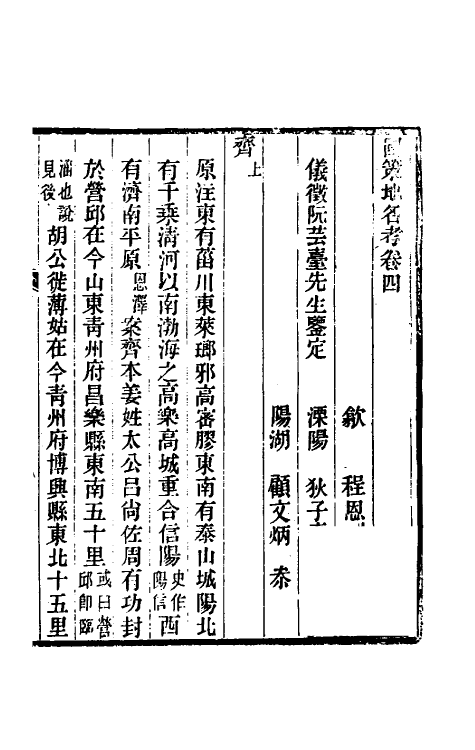 國策地名考卷四
歙 程恩
儀徵阮芸臺先生鑒定 溧陽 狄子
陽湖 顧文炳 叅
齊上
原注東有菑川東萊瑯邪高密膠東南有泰山城陽北
有千乘清河以南渤海之高樂高城重合信陽史作陽信西
有濟南平原恩澤案齊本姜姓太公呂尚佐周有功封
於營邱在今山東靑州府昌樂縣東南五十里或曰營邱卽臨
淄也說見後胡公徙薄姑在今靑州府博興縣東北十五里